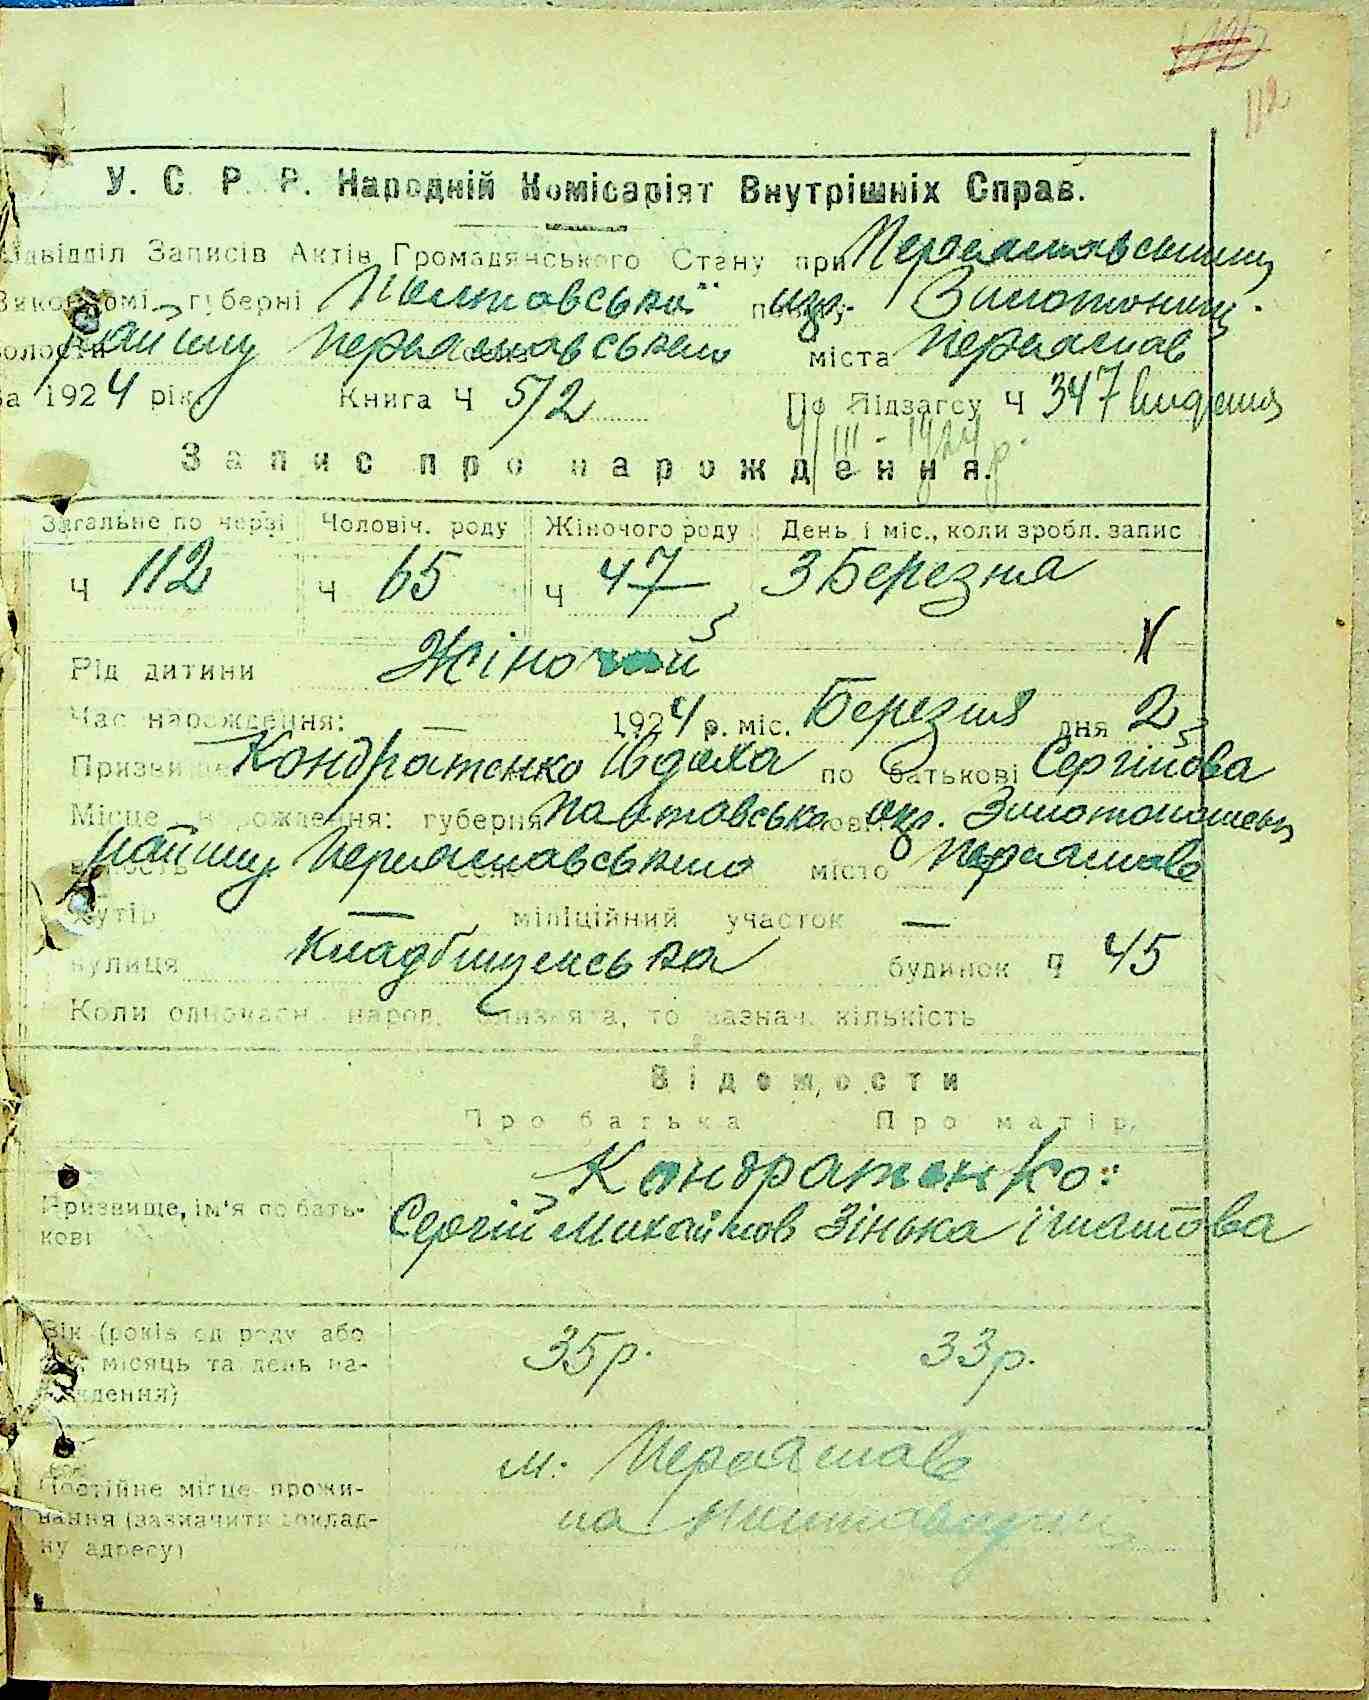 112
У. С. Р. Р. Народній Комісаріят Внутрішніх Справ.
Підвідділ Записів Актів Громадянського Стану при Переяславському
Виконкомі губерні Полтавської окр. Золотоніськ.
району Переяславського міста Переяслав
За 1924 рік Книга Ч 5/2 По Підзагсу Ч 347
III - 1924 р.
Запис про нарождення.
Загальне по черзі Чоловіч. роду Жіночого роду День і міс., коли зробл. запис
Ч 112 Ч 65 Ч 47 3 Березня
Рід дитини Жіночий
Час нарождення: — 1924 р. міс. Березня дня 2
Призвище Кондратенко Івдоха по батькові Сергійова
Місце нарождення: губерня Полтавська окр. Золотоношськ
району Переяславського місто Переяслав
хутір — міліційний участок —
вулиця Кладбищенська будинок ч 45
Коли одночасн. народ. близнята, то зазнач. кількість
Відомости
Про батька Про матір
Кондратенко:
Призвище, ім'я по бать-
кові
Сергій Михайлов Зінька Ігнатова
Вік (років од роду або
рік, місяць та день на-
рождення)
35 р. 33 р.
Постійне місце прожи-
вання (зазначити доклад-
ну адресу)
м. Переяслав
на